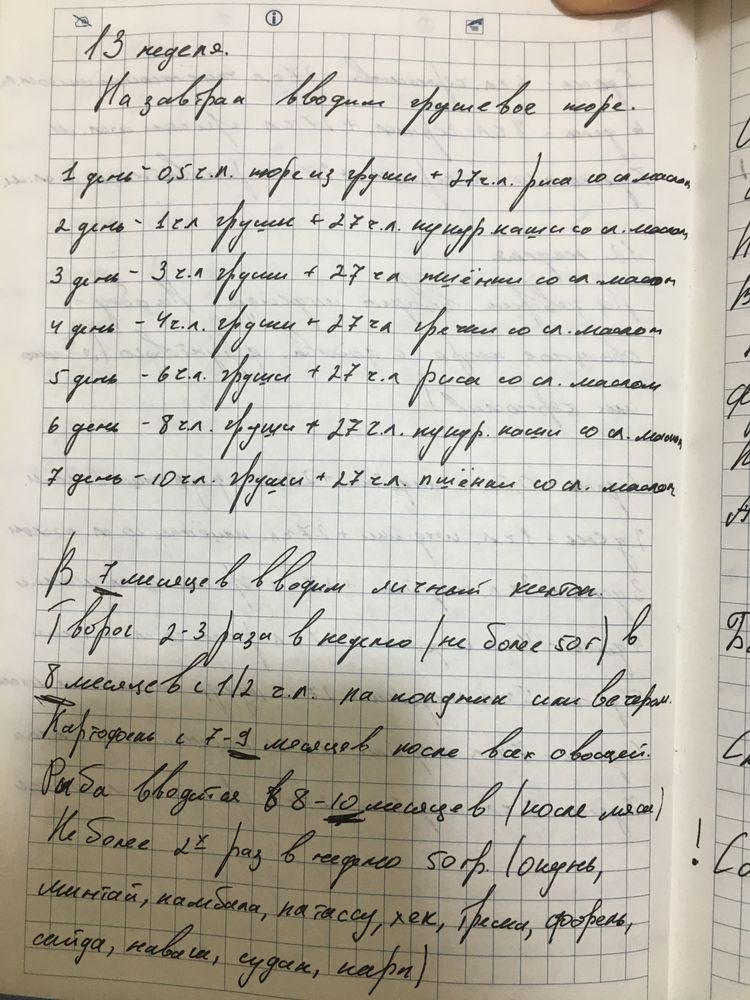 13 неделя.
На завтрак вводим грушевое пюре.
1 день - 0,5 ч.л. пюре из груши + 27 ч.л. риса со сл. маслом
2 день - 1 ч л груши + 27 ч.л. кукур. каши со сл. маслом
3 день - 3 ч л груши + 27 ч л пшёнки со сл. маслом
4 день - 4 ч.л. груши + 27 ч л гречки со сл. маслом
5 день - 6 ч.л. груши + 27 ч л риса со сл. маслом
6 день - 8 ч.л. груши + 27 ч.л. кукур. каши со сл. маслом
7 день - 10 ч.л. груши + 27 ч.л. пшёнки со сл. маслом
В 7 месяцев вводим яичный желток.
Творог 2-3 раза в неделю (не более 50 г) в
8 месяцев с 1/2 ч.л. на полдник или вечером.
Картофель с 7-9 месяцев после всех овощей.
Рыба вводится в 8-10 месяцев (после мяса)
Не более 2х раз в неделю 50 гр. (окунь,
минтай, камбала, патассу, хек, треска, форель,
сайда, навага, судак, карп)